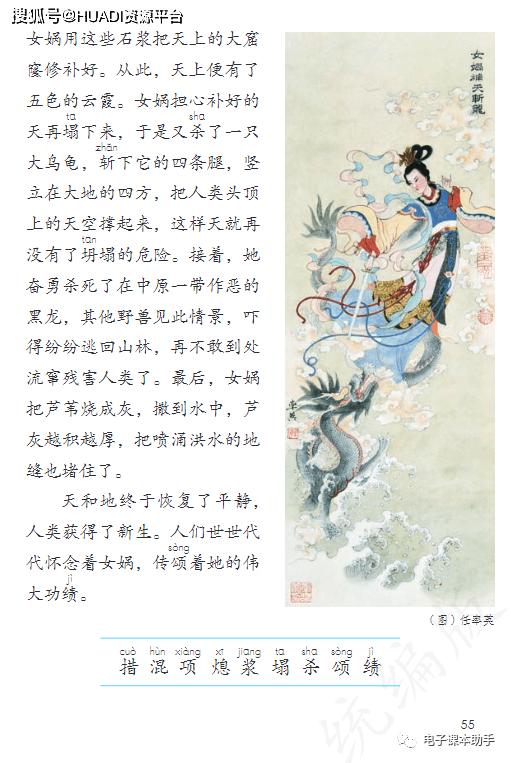 搜狐号@HUADI资源平台
女娲用这些石浆把天上的大窟
窿修补好。从此，天上便有了
五色的云霞。女娲担心补好的
tā shā
天再塌下来，于是又杀了一只
zhǎn
大乌龟，斩下它的四条腿，竖
立在大地的四方，把人类头顶
上的天空撑起来，这样天就再
tān
没有了坍塌的危险。接着，她
奋勇杀死了在中原一带作恶的
黑龙，其他野兽见此情景，吓
得纷纷逃回山林，再不敢到处
流窜残害人类了。最后，女娲
把芦苇烧成灰，撒到水中，芦
灰越积越厚，把喷涌洪水的地
缝也堵住了。
天和地终于恢复了平静，
人类获得了新生。人们世世代
sòng
代怀念着女娲，传颂着她的伟
jì
大功绩。
女娲补天斩龙
率英
（图）任率英
cuò hùn xiàng xī jiāng tā shā sòng jì
措 混 项 熄 浆 塌 杀 颂 绩
统编版
55
电子课本助手